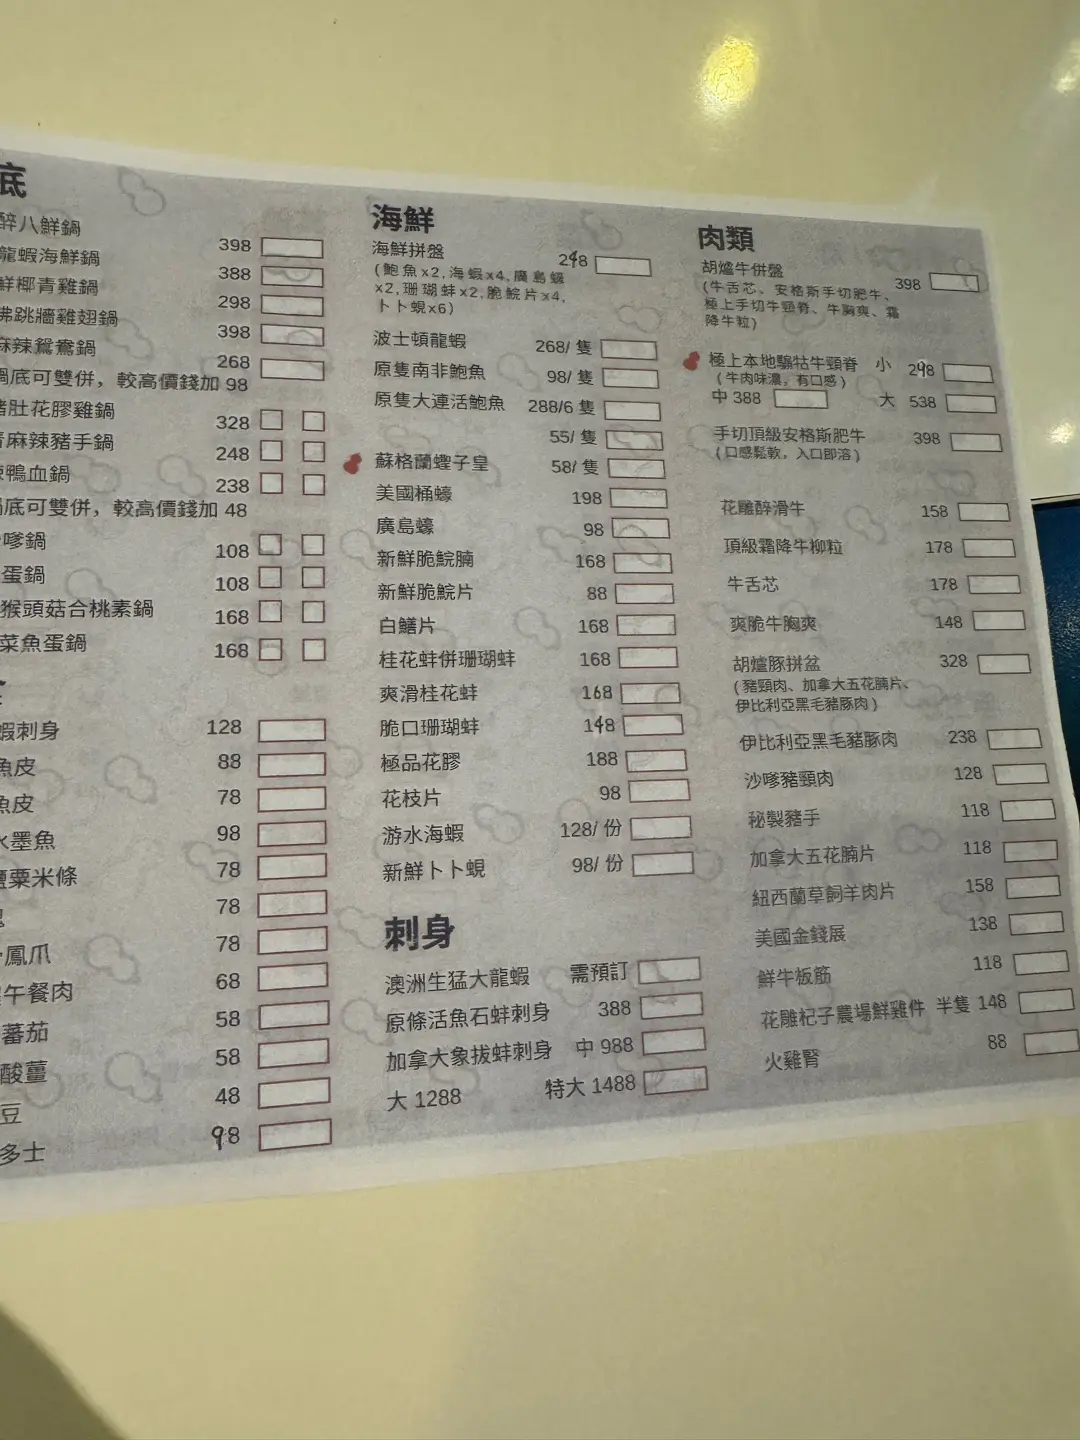 底
醉八鮮鍋 398
龍蝦海鮮鍋 388
鮮椰青雞鍋 298
佛跳牆雞翅鍋 398
麻辣鴛鴦鍋 268
鍋底可雙併，較高價錢加 98
豬肚花膠雞鍋 328
麻辣豬手鍋 248
鴨血鍋 238
鍋底可雙併，較高價錢加 48
嗲鍋 108
蛋鍋 108
猴頭菇合桃素鍋 168
菜魚蛋鍋 168
蝦刺身 128
魚皮 88
魚皮 78
水墨魚 98
粟米條 78
78
鳳爪 78
午餐肉 68
蕃茄 58
酸薑 58
豆 48
多士 98
海鮮
海鮮拼盤 248
(鮑魚x2,海蝦x4,廣島蠔
x2,珊瑚蚌x2,脆鯇片x4,
卜卜蜆x6)
波士頓龍蝦 268/ 隻
原隻南非鮑魚 98/ 隻
原隻大連活鮑魚 288/6 隻
55/ 隻
蘇格蘭蟶子皇 58/ 隻
美國桶蠔 198
廣島蠔 98
新鮮脆鯇腩 168
新鮮脆鯇片 88
白鱔片 168
桂花蚌併珊瑚蚌 168
爽滑桂花蚌 168
脆口珊瑚蚌 148
極品花膠 188
花枝片 98
游水海蝦 128/ 份
新鮮卜卜蜆 98/ 份
刺身
澳洲生猛大龍蝦 需預訂
原條活魚石蚌刺身 388
加拿大象拔蚌刺身 中 988
大 1288 特大 1488
肉類
胡爐牛併盤 398
(牛舌芯、安格斯手切肥牛、
極上手切牛頸脊、牛胸爽、霜
降牛粒)
極上本地騸牯牛頸脊 小 298
(牛肉味濃，有口感)
中 388 大 538
手切頂級安格斯肥牛 398
(口感鬆軟，入口即溶)
花雕醉滑牛 158
頂級霜降牛柳粒 178
牛舌芯 178
爽脆牛胸爽 148
胡爐豚拼盆 328
(豬頸肉、加拿大五花腩片、
伊比利亞黑毛豬豚肉)
伊比利亞黑毛豬豚肉 238
沙嗲豬頸肉 128
秘製豬手 118
加拿大五花腩片 118
紐西蘭草飼羊肉片 158
美國金錢展 138
鮮牛板筋 118
花雕杞子農場鮮雞件 半隻 148
火雞腎 88